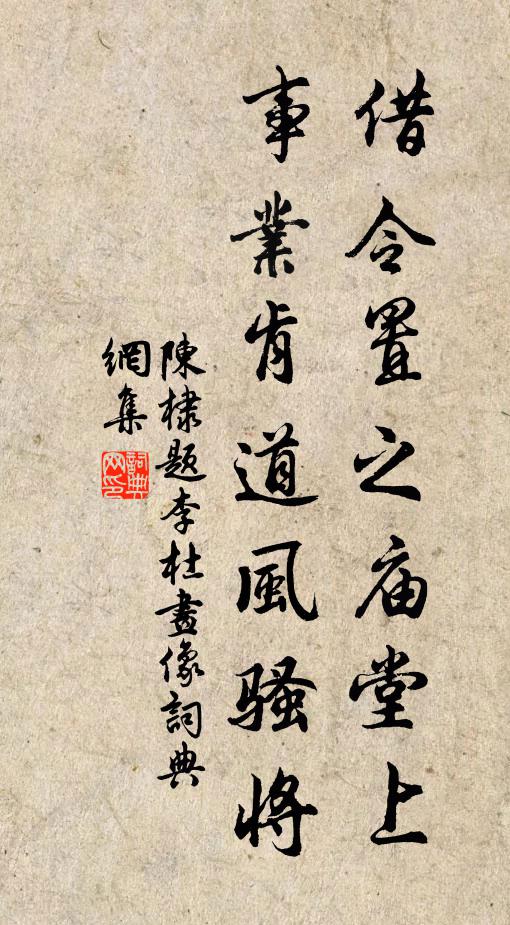 借令置之庙堂上
事業肯道風騷將
陳棣题李杜畫像詞典
網集
詞典
网印